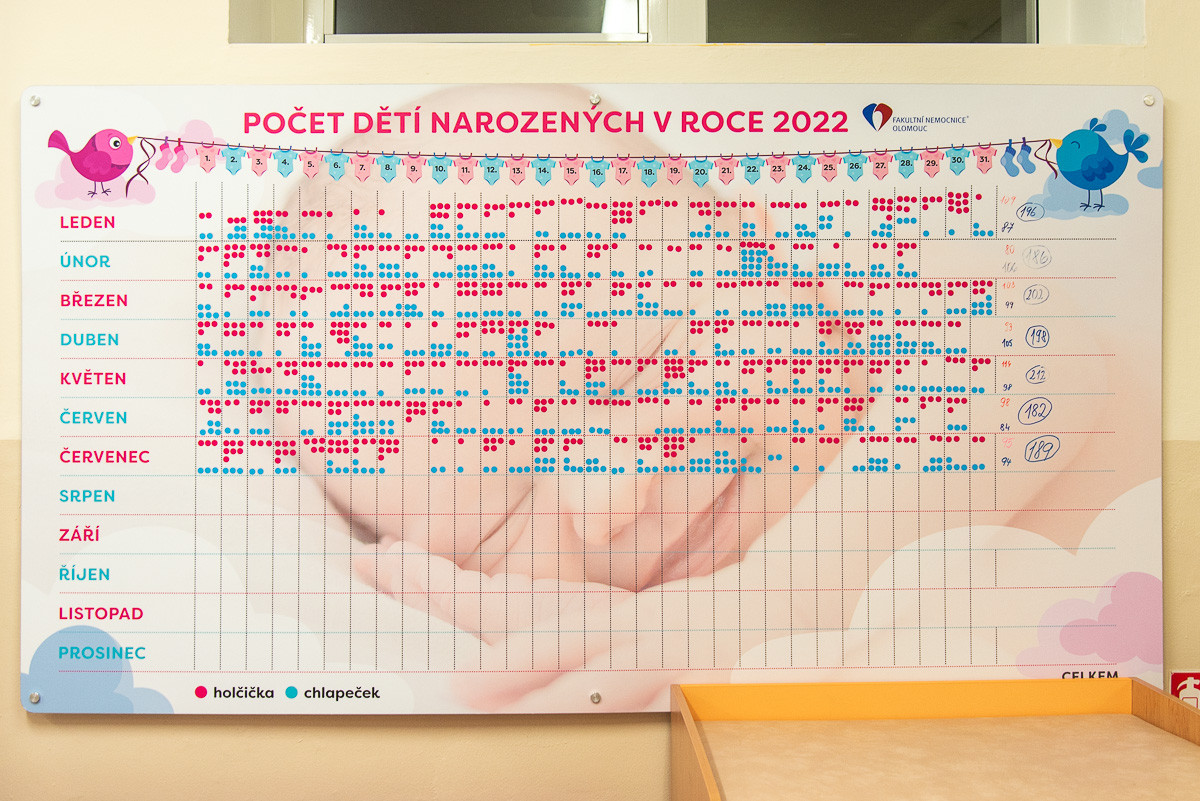 POČET DĚTÍ NAROZENÝCH V ROCE 2022
FAKULTNÍ NEMOCNICE®
OLOMOUC
1. 2. 3. 4. 5. 6. 7. 8. 9. 10. 11. 12. 13. 14. 15. 16. 17. 18. 19. 20. 21. 22. 23. 24. 25. 26. 27. 28. 29. 30. 31.
LEDEN 109 196
87
ÚNOR 80 186
106
BŘEZEN 103 202
99
DUBEN 93 198
105
KVĚTEN 114 212
98
ČERVEN 98 182
84
ČERVENEC 95 189
94
SRPEN
ZÁŘÍ
ŘÍJEN
LISTOPAD
PROSINEC
CELKEM
holčička chlapeček